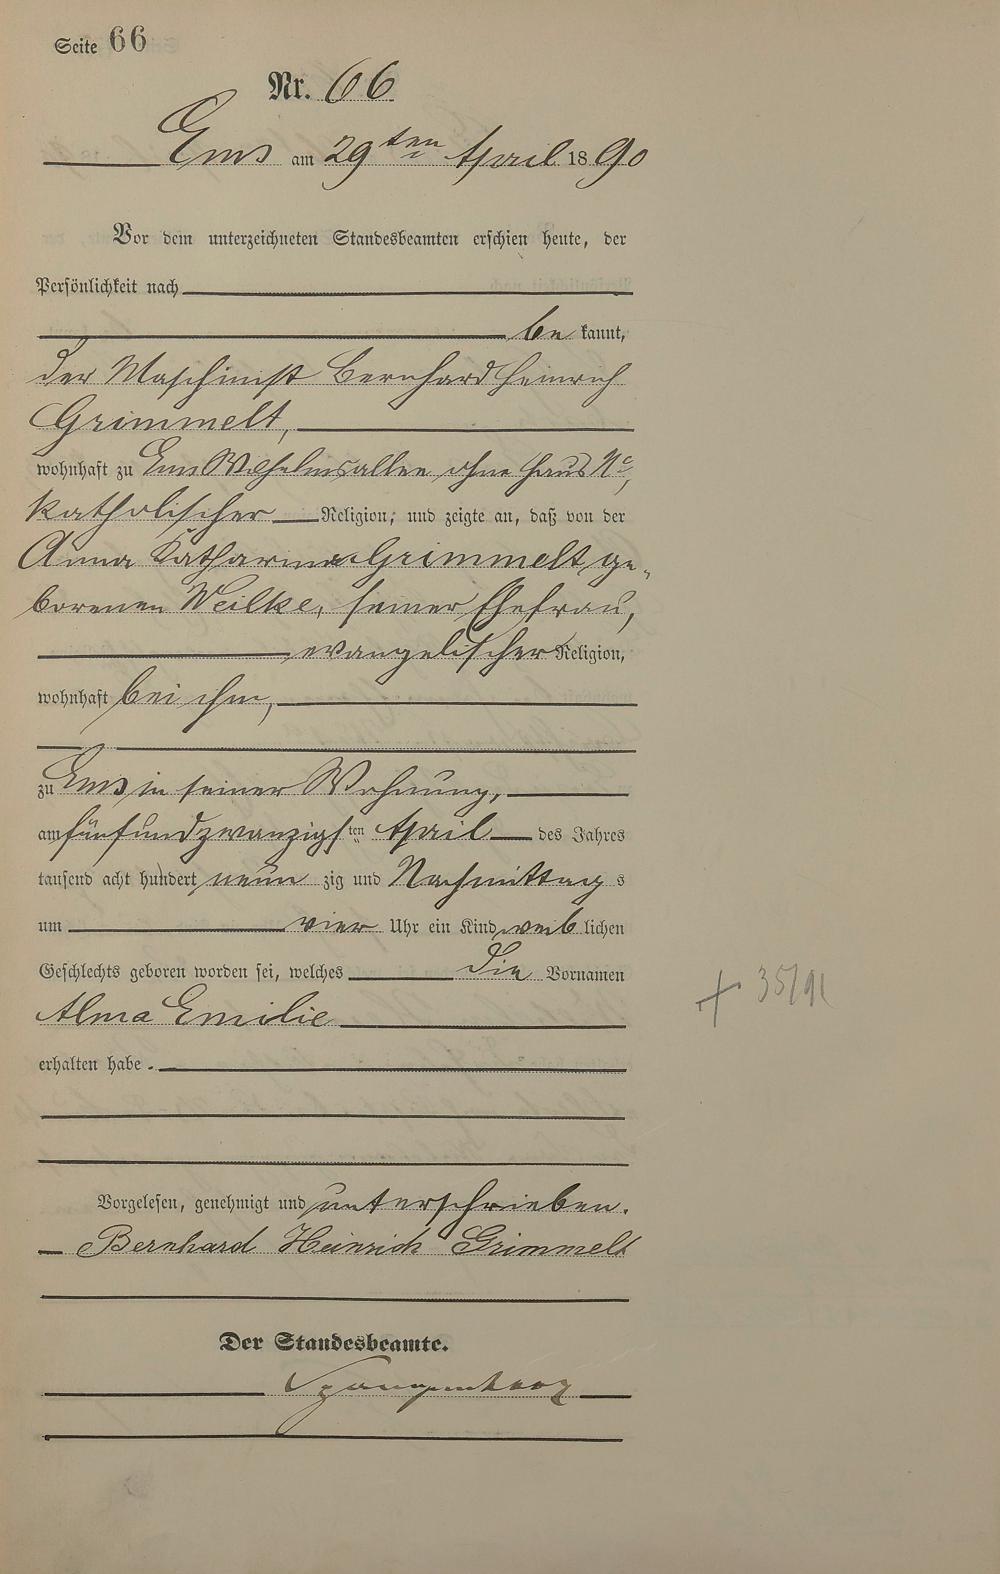 Seite 66
Nr. 66
Ems am 29ten April 1890
Vor dem unterzeichneten Standesbeamten erschien heute, der
Persönlichkeit nach
bekannt,
der Maschinist Bernhard Heinrich
Grimmelt,
wohnhaft zu Ems Wilhelmsallee ohne Haus No,
katholischer Religion, und zeigte an, daß von der
Anna Katharina Grimmelt, ge-
borenen Weilke, seiner Ehefrau,
evangelischer Religion,
wohnhaft bei ihm,
zu Ems in seiner Wohnung,
am fünfundzwanzigsten April des Jahres
tausend acht hundert neunzig und Nachmittags
um vier Uhr ein Kind weiblichen
Geschlechts geboren worden sei, welches die Vornamen
Alma Emilie
+ 35/91
erhalten habe.
Vorgelesen, genehmigt und unterschrieben.
Bernhard Heinrich Grimmelt
Der Standesbeamte.